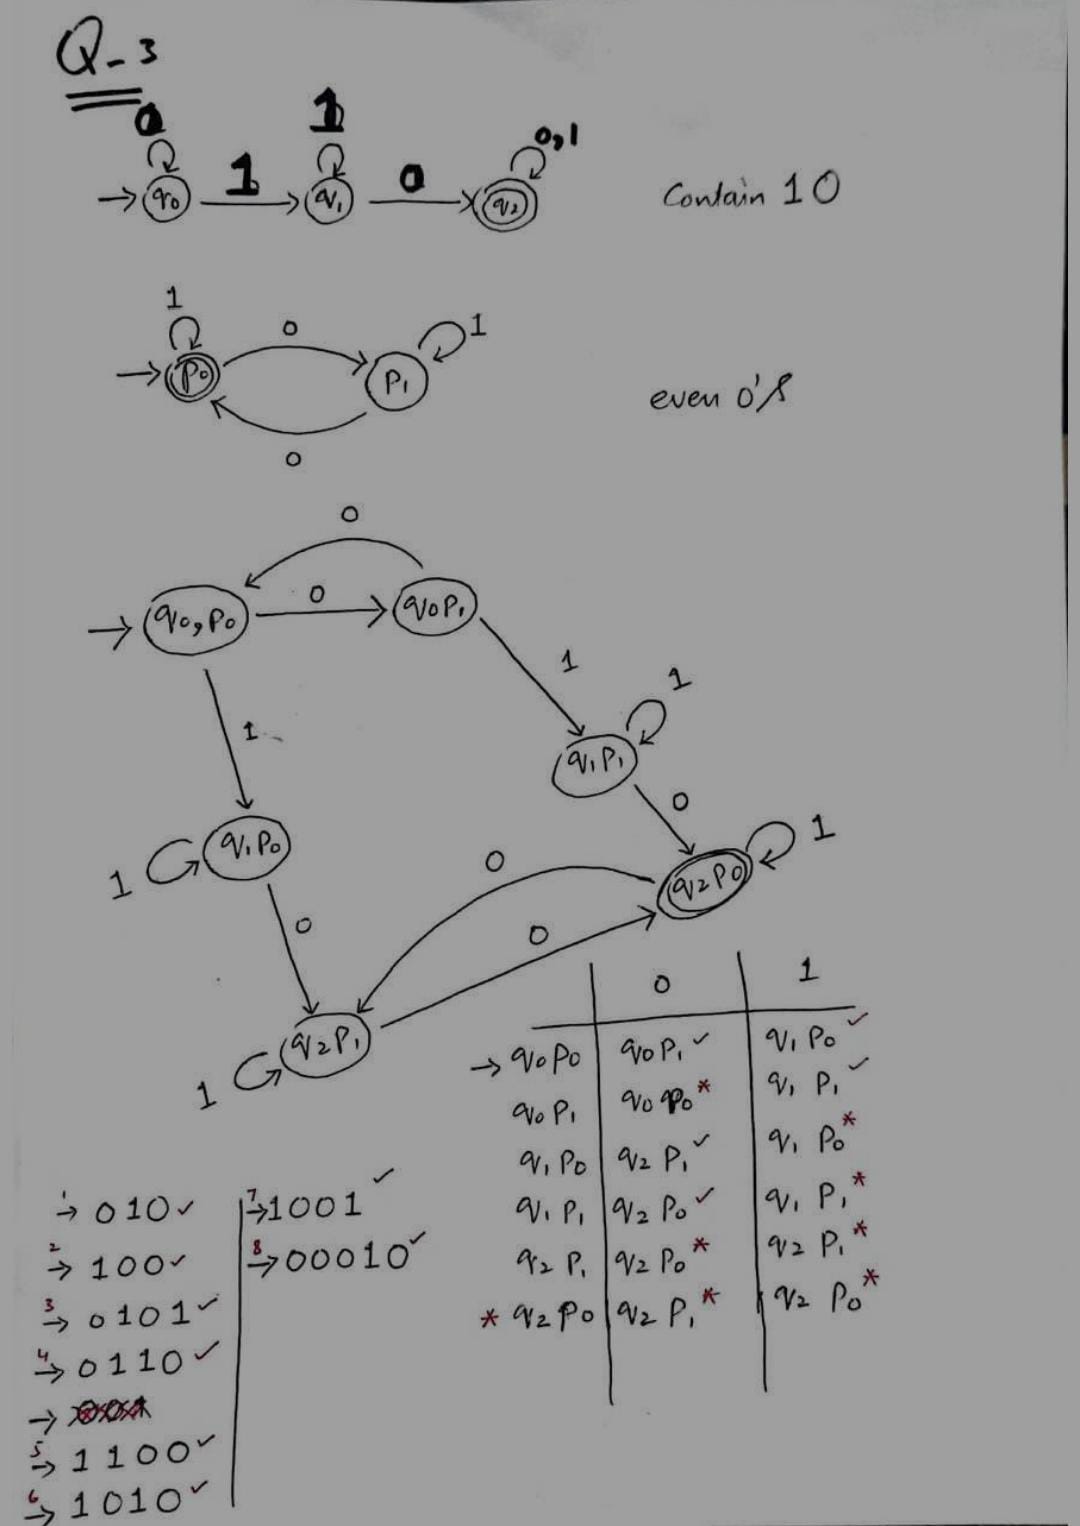 Q-3
0 1 0,1
→ q0 1 q1 0 q2 Contain 10
1 0 1
→ p0 p1 even 0's
0
0
→ q0,p0 0 q0p1
1 1 1
q1p1
0
1 q1p0 0 q2p0 1
0 0
1 q2p1
0 1
→ q0p0 q0p1 ✓ q1p0 ✓
q0p1 q0p0 * q1p1 ✓
q1p0 q2p1 ✓ q1p0 *
q1p1 q2p0 ✓ q1p1 *
q2p1 q2p0 * q2p1 *
* q2p0 q2p1 * q2p0 *
1 → 010 ✓
2 → 100 ✓
3 → 0101 ✓
4 → 0110 ✓
→
5 → 1100 ✓
6 → 1010 ✓
7 → 1001 ✓
8 → 00010 ✓